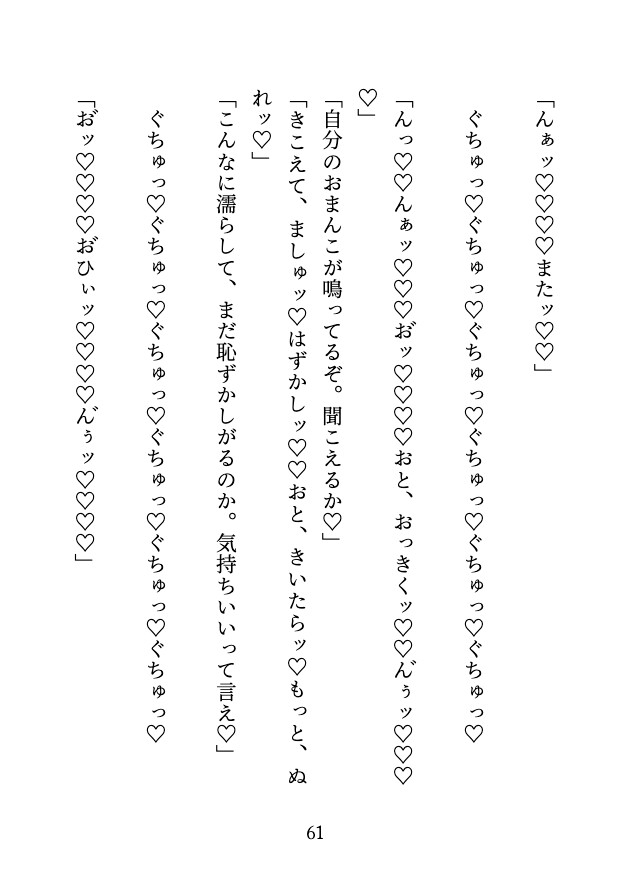 「んぁッ♡♡♡♡またッ♡♡」
ぐちゅっ♡ぐちゅっ♡ぐちゅっ♡ぐちゅっ♡ぐちゅっ♡ぐちゅっ♡
「んっ♡♡んぁッ♡♡♡お゙ッ♡♡♡♡おと、おっきくッ♡♡ん゙ぅッ♡♡♡
♡」
「自分のおまんこが鳴ってるぞ。聞こえるか♡」
「きこえて、ましゅッ♡はずかしッ♡♡おと、きいたらッ♡もっと、ぬ
れッ♡」
「こんなに濡らして、まだ恥ずかしがるのか。気持ちいいって言え♡」
ぐちゅっ♡ぐちゅっ♡ぐちゅっ♡ぐちゅっ♡ぐちゅっ♡ぐちゅっ♡
「お゙ッ♡♡♡♡お゙ひぃッ♡♡♡♡ん゙ぅッ♡♡♡♡」
61